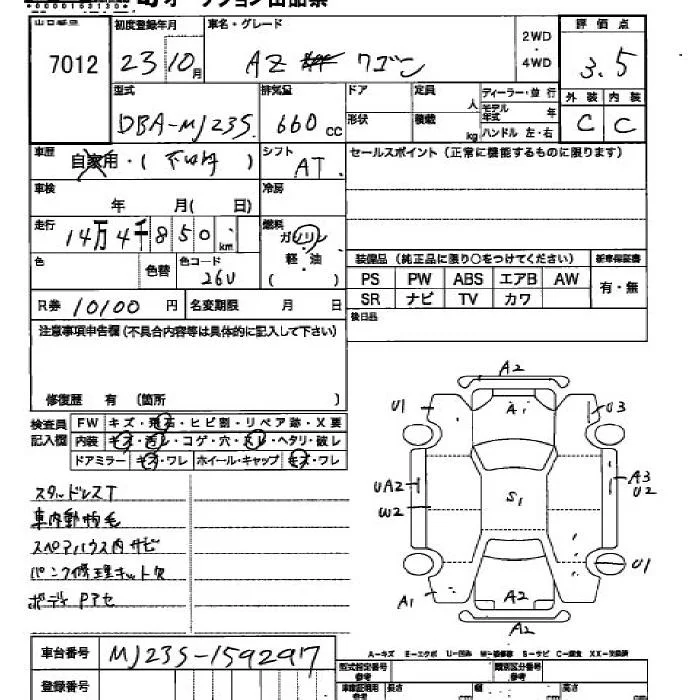 オークション出品票
出品番号 初度登録年月 車名・グレード 2WD・4WD 評価点
7012 23 10月 AZ ワゴン 3.5
型式 排気量 ドア 定員 人 ディーラー・並行 外装 内装
DBA-MJ23S 660cc 形状 積載 kg モデル年式 年 ハンドル 左・右 C C
車歴 自家用・( 不明 ) シフト AT セールスポイント(正常に機能するものに限ります)
車検 年 月( 日) 冷房
走行 14万4千850km 燃料 ガソリン・軽・油 ( )
装備品(純正品に限り○をつけてください) 新車保証書
色 色替 色コード 26U
PS PW ABS エアB AW 有・無
SR ナビ TV カワ
R券 10100円 名変期限 月 日
後日品
注意事項申告欄(不具合内容等は具体的に記入して下さい)
修復歴 有 〔箇所 〕
検査員記入欄
FW キズ・飛石・ヒビ割・リペア跡・X要
内装 キズ・汚レ・コゲ・穴・スレ・ヘタリ・破レ
ドアミラー キズ・ワレ ホイール・キャップ キズ・ワレ
スタッドレスT
車内動物毛
スペアハウス内サビ
パンク修理キット欠
ボディPアセ
A2
U1 A1 U3
UA2 A3
W2 S1 U2
U1
A1 A2
A2
A-キズ E-エクボ U-凹み W-補修跡 S-サビ C-腐食 XX-交換済
車台番号 MJ23S-159297
型式指定番号 類別区分番号
登録番号 車庫証明用参考 長さ cm 幅 cm 高さ cm